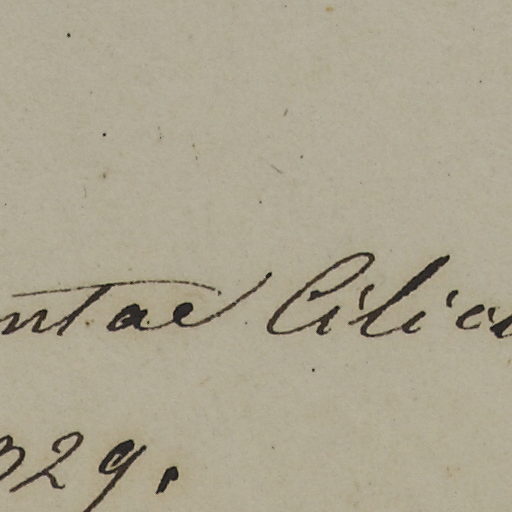 ntae Cilici
329.